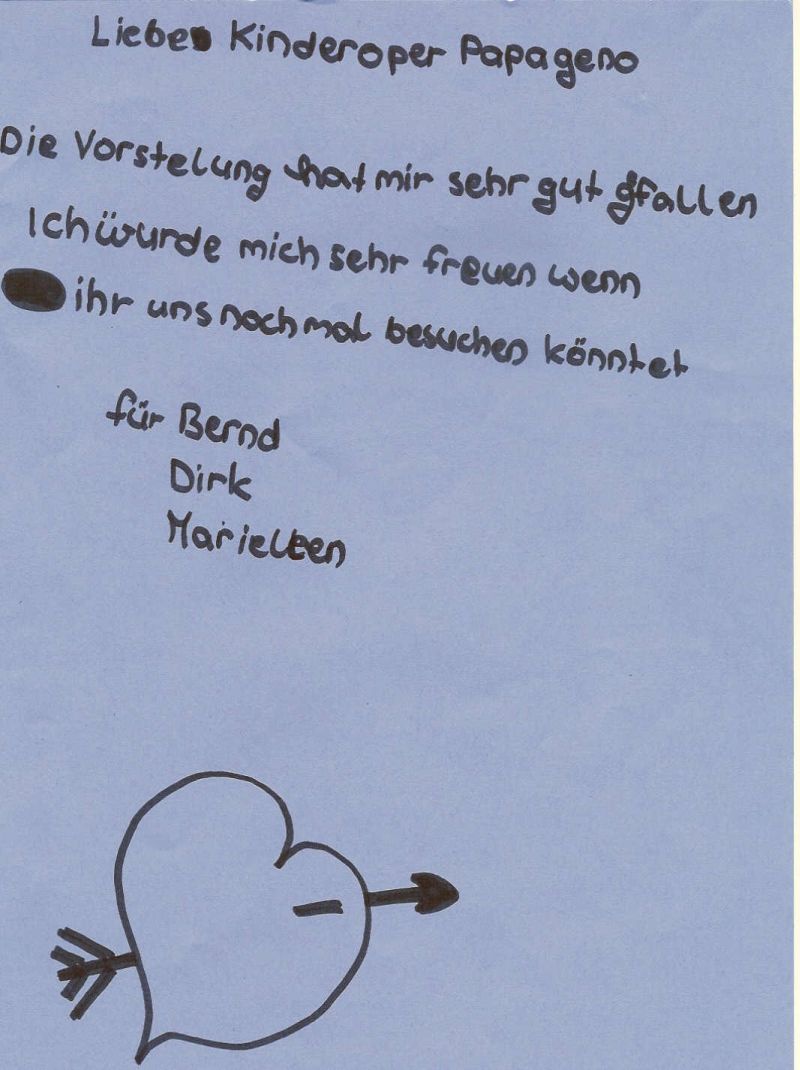 Liebe Kinderoper Papageno
Die Vorstelung hat mir sehr gut gfallen
Ich würde mich sehr freuen wenn
ihr uns noch mal besuchen könntet
für Bernd
Dirk